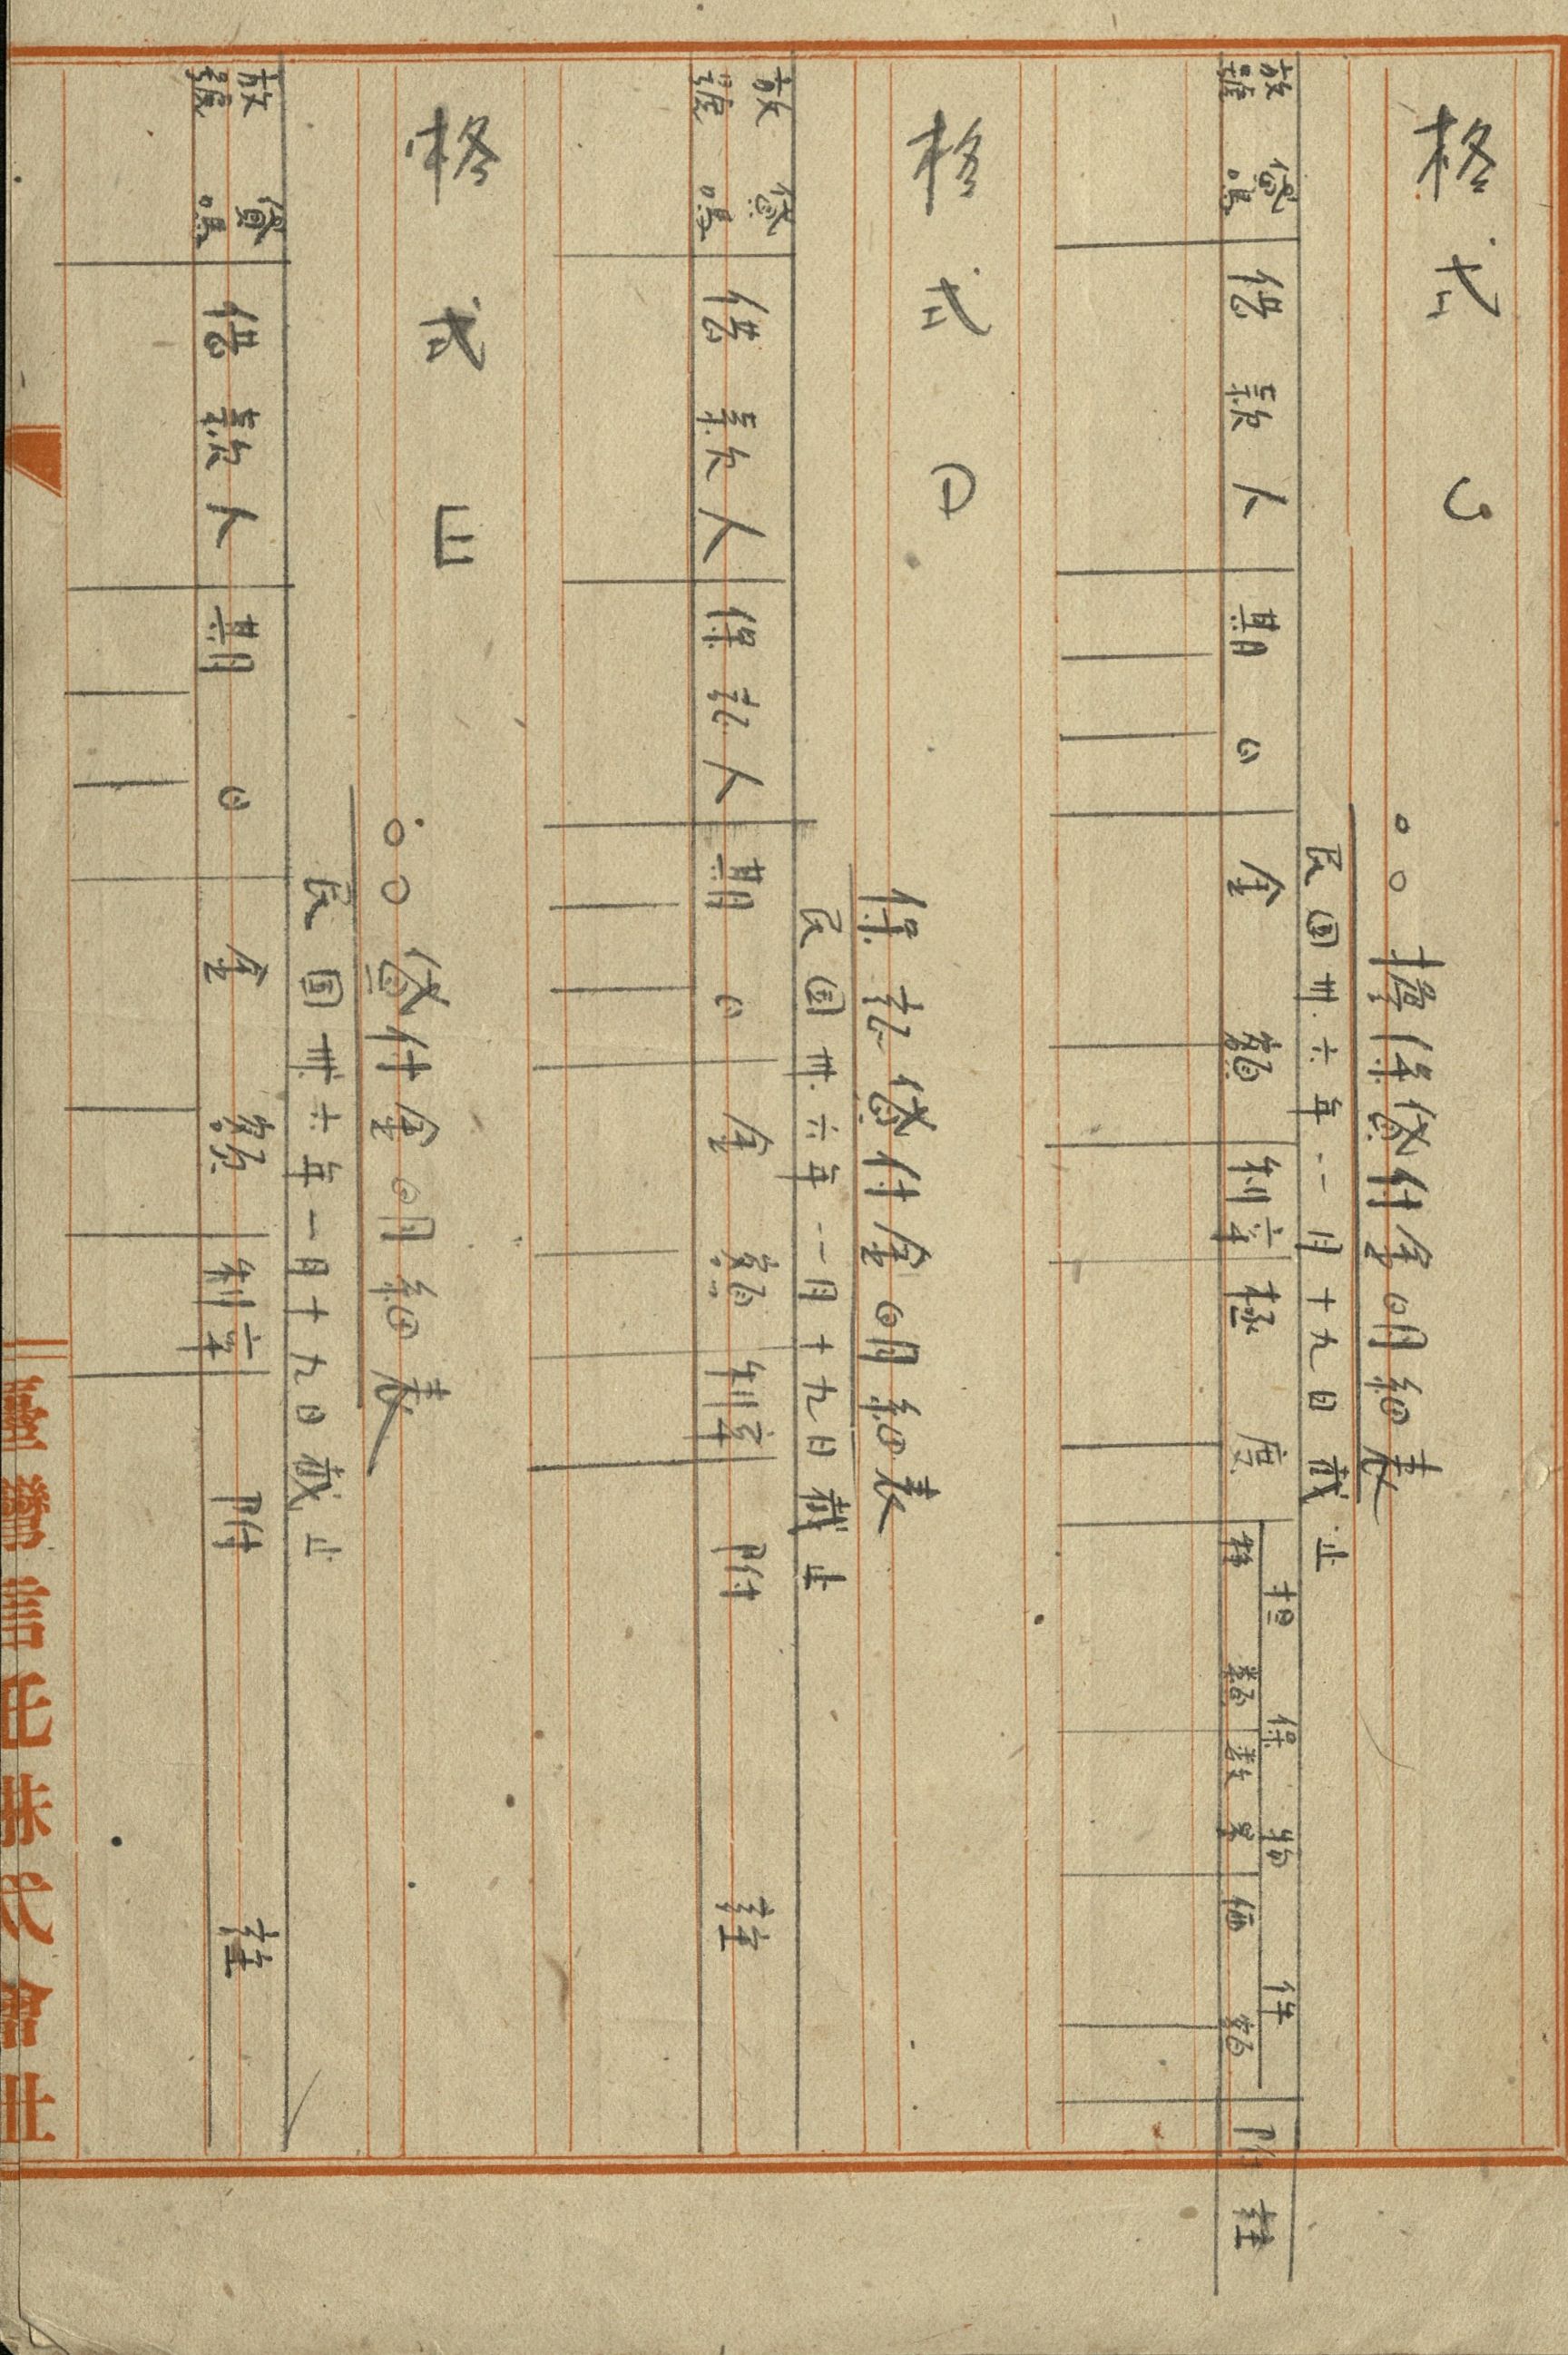 格式 C
○○擔保貸付金明細表
民國卅六年一月十九日截止
放貸
號碼
借款人
期日
金額
利率
極度
担保物件
種類
數量
価額
附註
格式 D
保証貸付金明細表
民國卅六年一月十九日截止
放貸
號碼
借款人
保証人
期日
金額
利率
附註
格式 E
○○貸付金明細表
民國卅六年一月十九日截止
放貸
號碼
借款人
期日
金額
利率
附註
臺灣信託株式會社